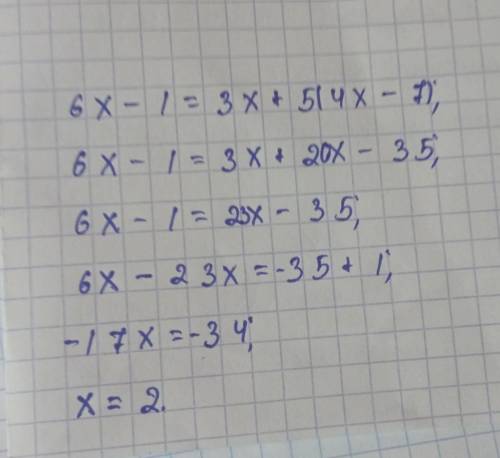 6x - 1 = 3x + 5(4x - 7);
6x - 1 = 3x + 20x - 35;
6x - 1 = 23x - 35;
6x - 23x = -35 + 1;
-17x = -34;
x = 2.